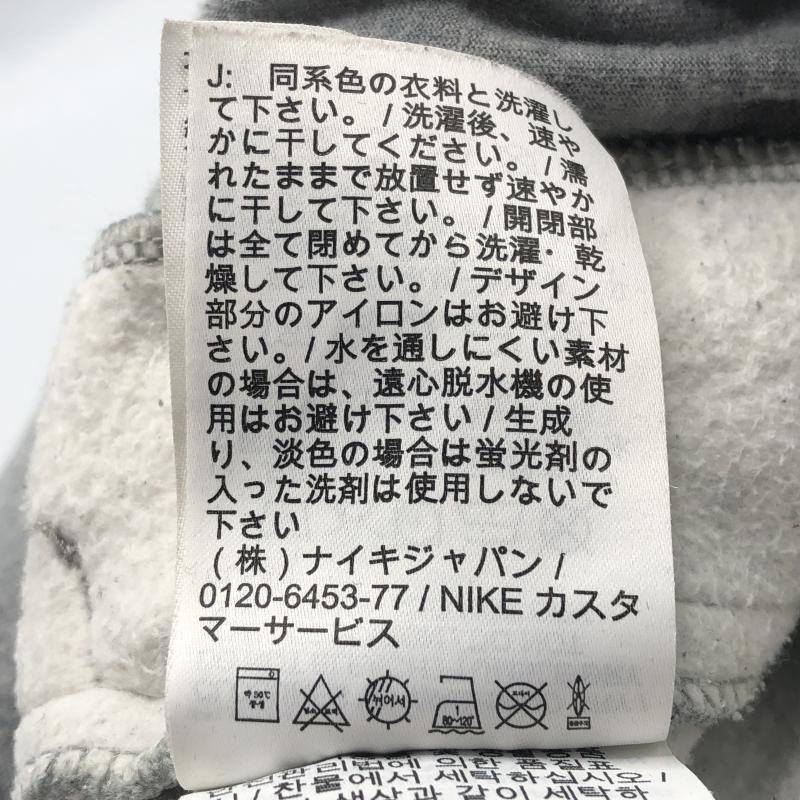 J: 同系色の衣料と洗濯し
て下さい。 / 洗濯後、速や
かに干してください。 / 濡
れたままで放置せず速やか
に干して下さい。 / 開閉部
は全て閉めてから洗濯・乾
燥して下さい。 / デザイン
部分のアイロンはお避け下
さい。/ 水を通しにくい素材
の場合は、遠心脱水機の使
用はお避け下さい / 生成
り、淡色の場合は蛍光剤の
入った洗剤は使用しないで
下さい
(株) ナイキジャパン /
0120-6453-77 / NIKE カスタ
マーサービス
약 30℃ 중성
뉘어서
80~120℃
드라이
찬물에서 세탁하십시오 /
색상과 같이 세탁하